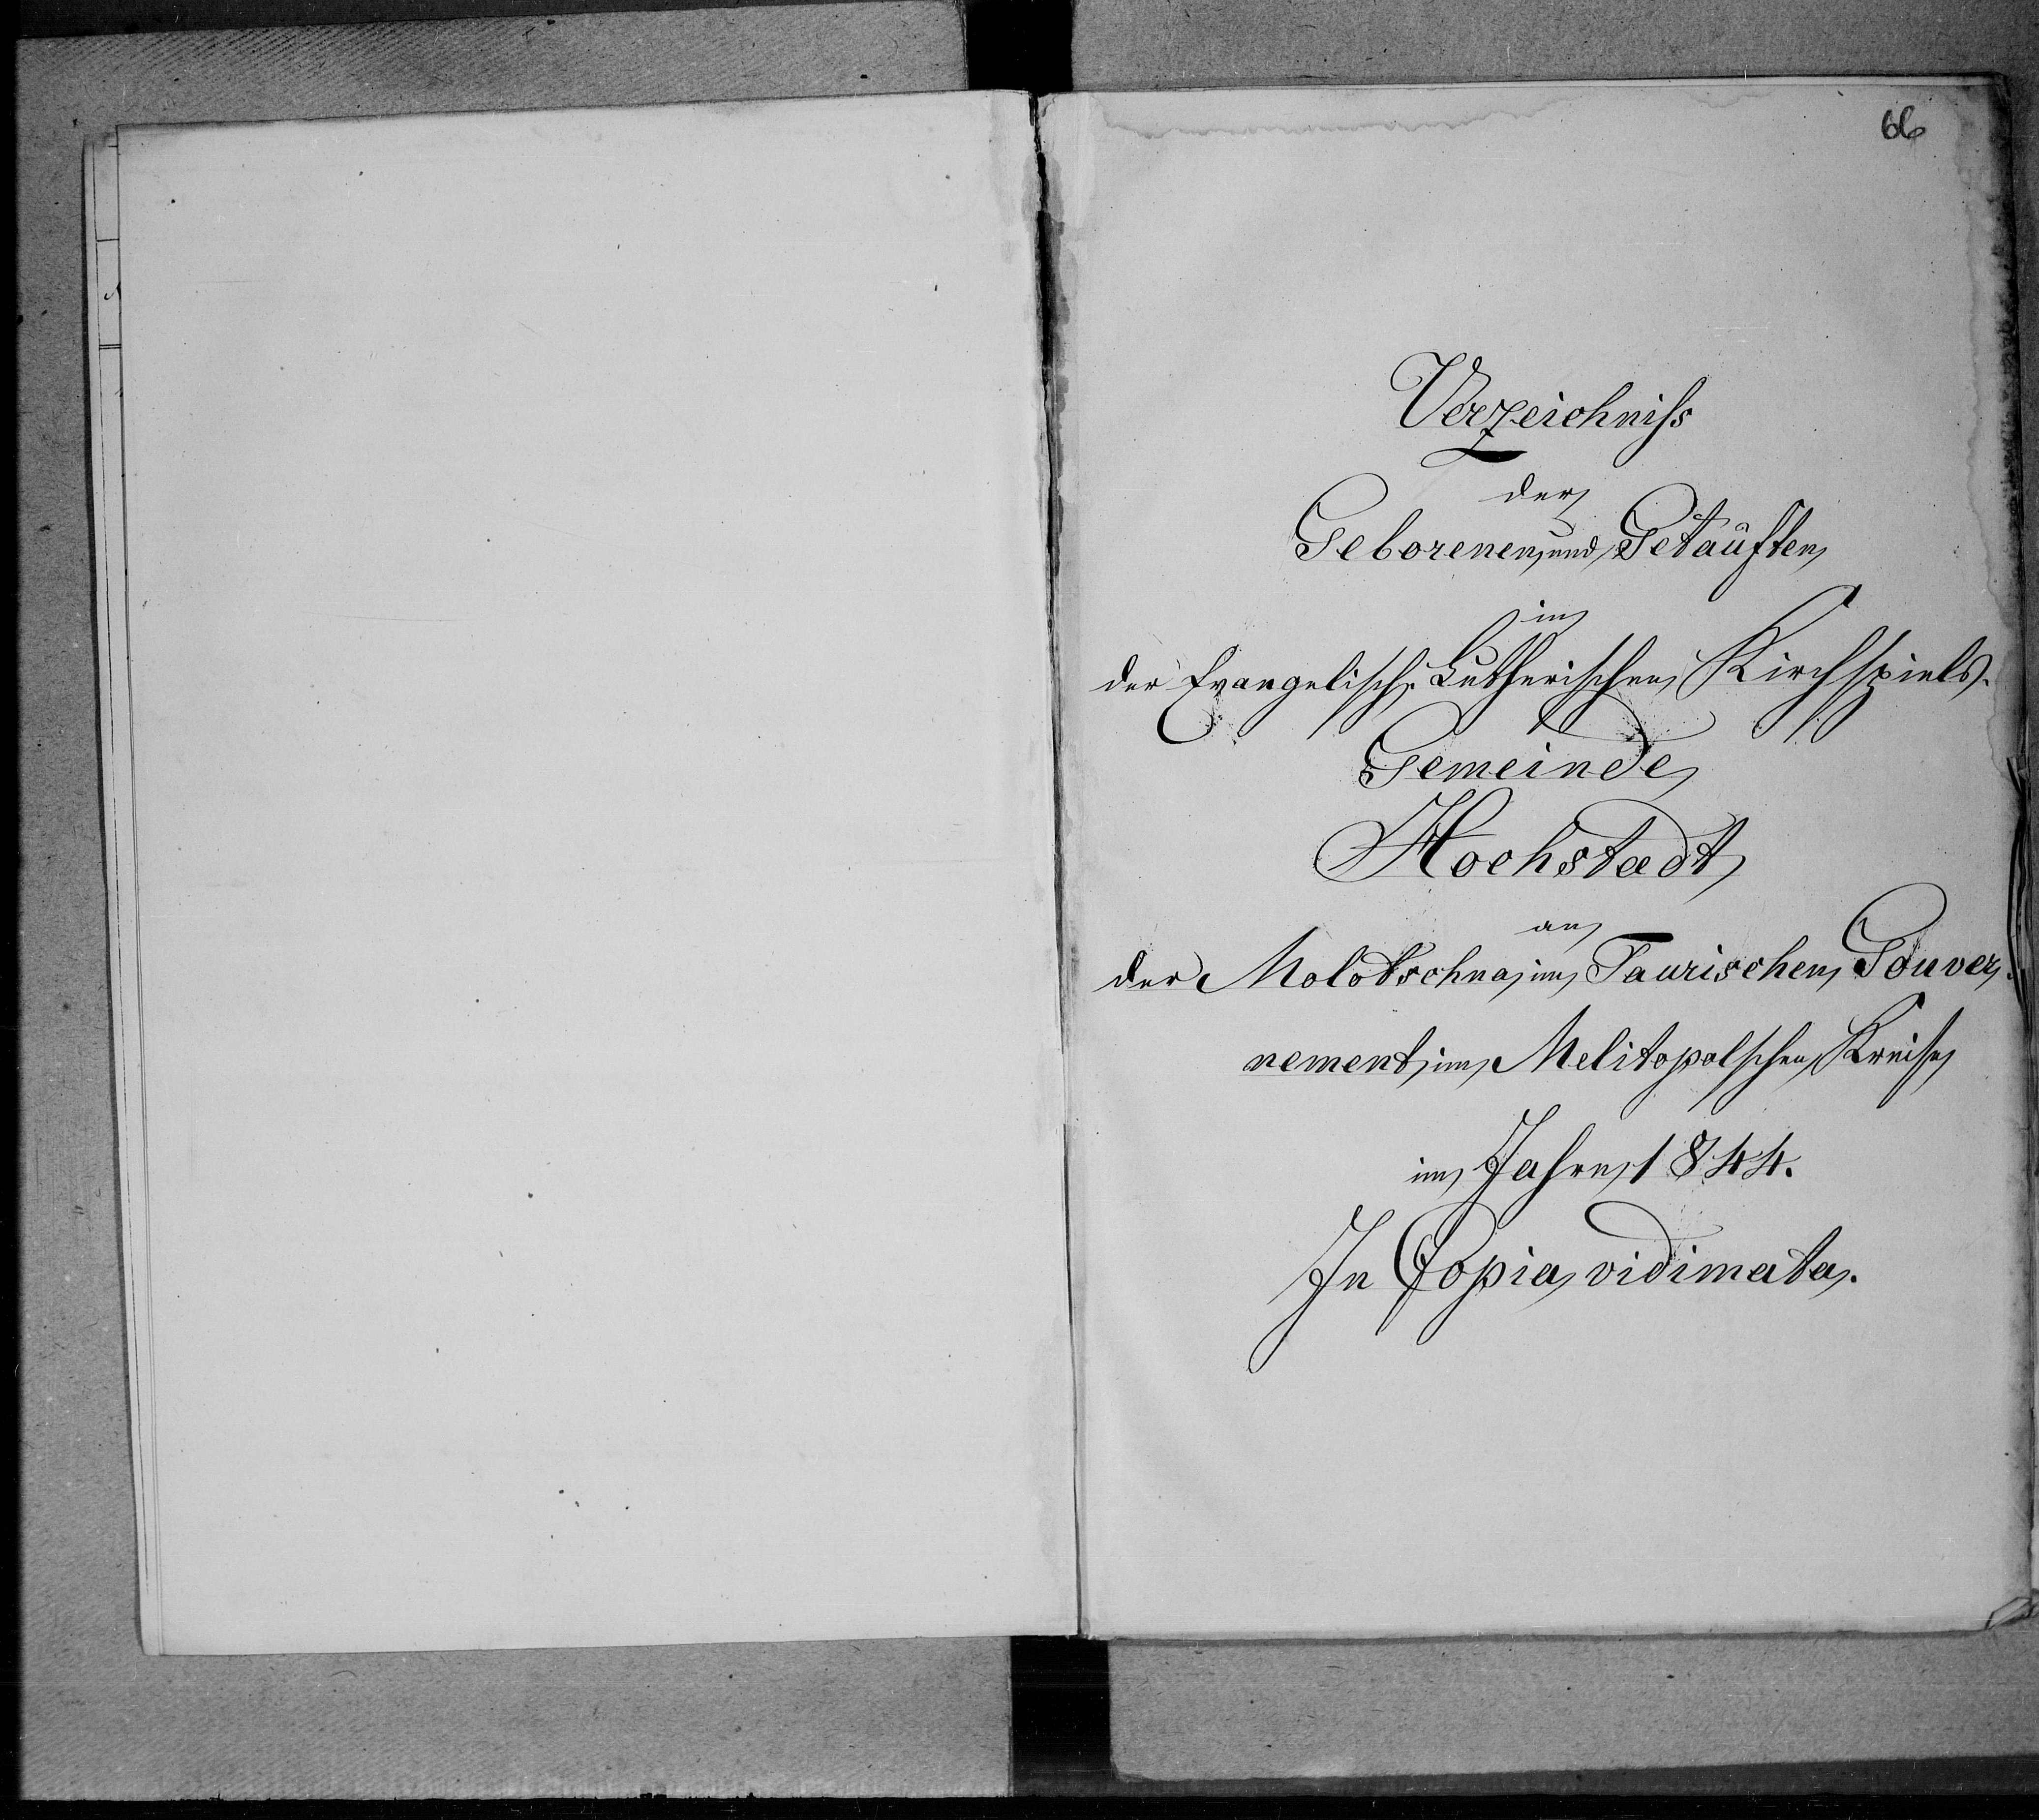 66
Verzeichniss
der
Geborenen und Getauften
in
der Evangelisch-Lutherischen Kirchspiels-
Gemeinde
Hochstadt
an
der Molotschna, im Taurischen Gouver-
nement, im Melitopolschen Kreise,
im Jahre 1844.
In Copia vidimata.